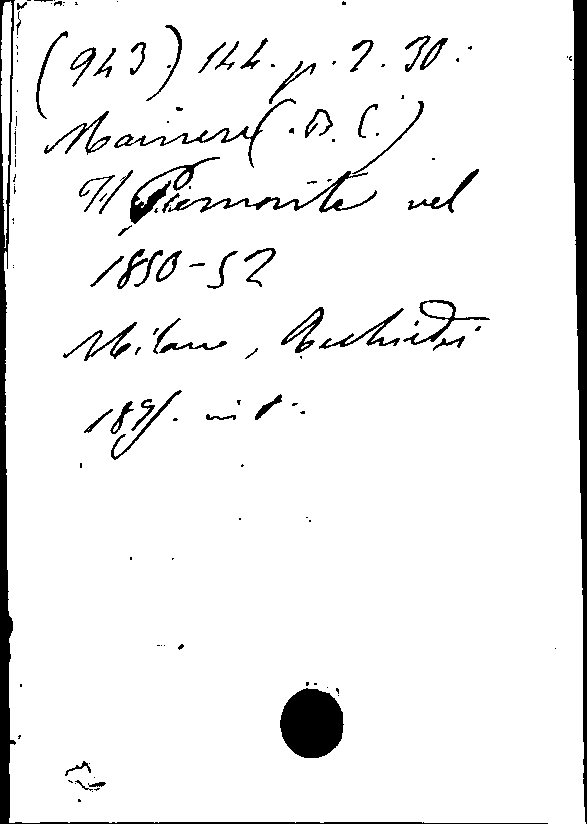 (943) 144. p. 2. 30.
Maineri (B. C.)
Il Piemonte nel
1850-52
Milano, Rechiedei
189 in 8.